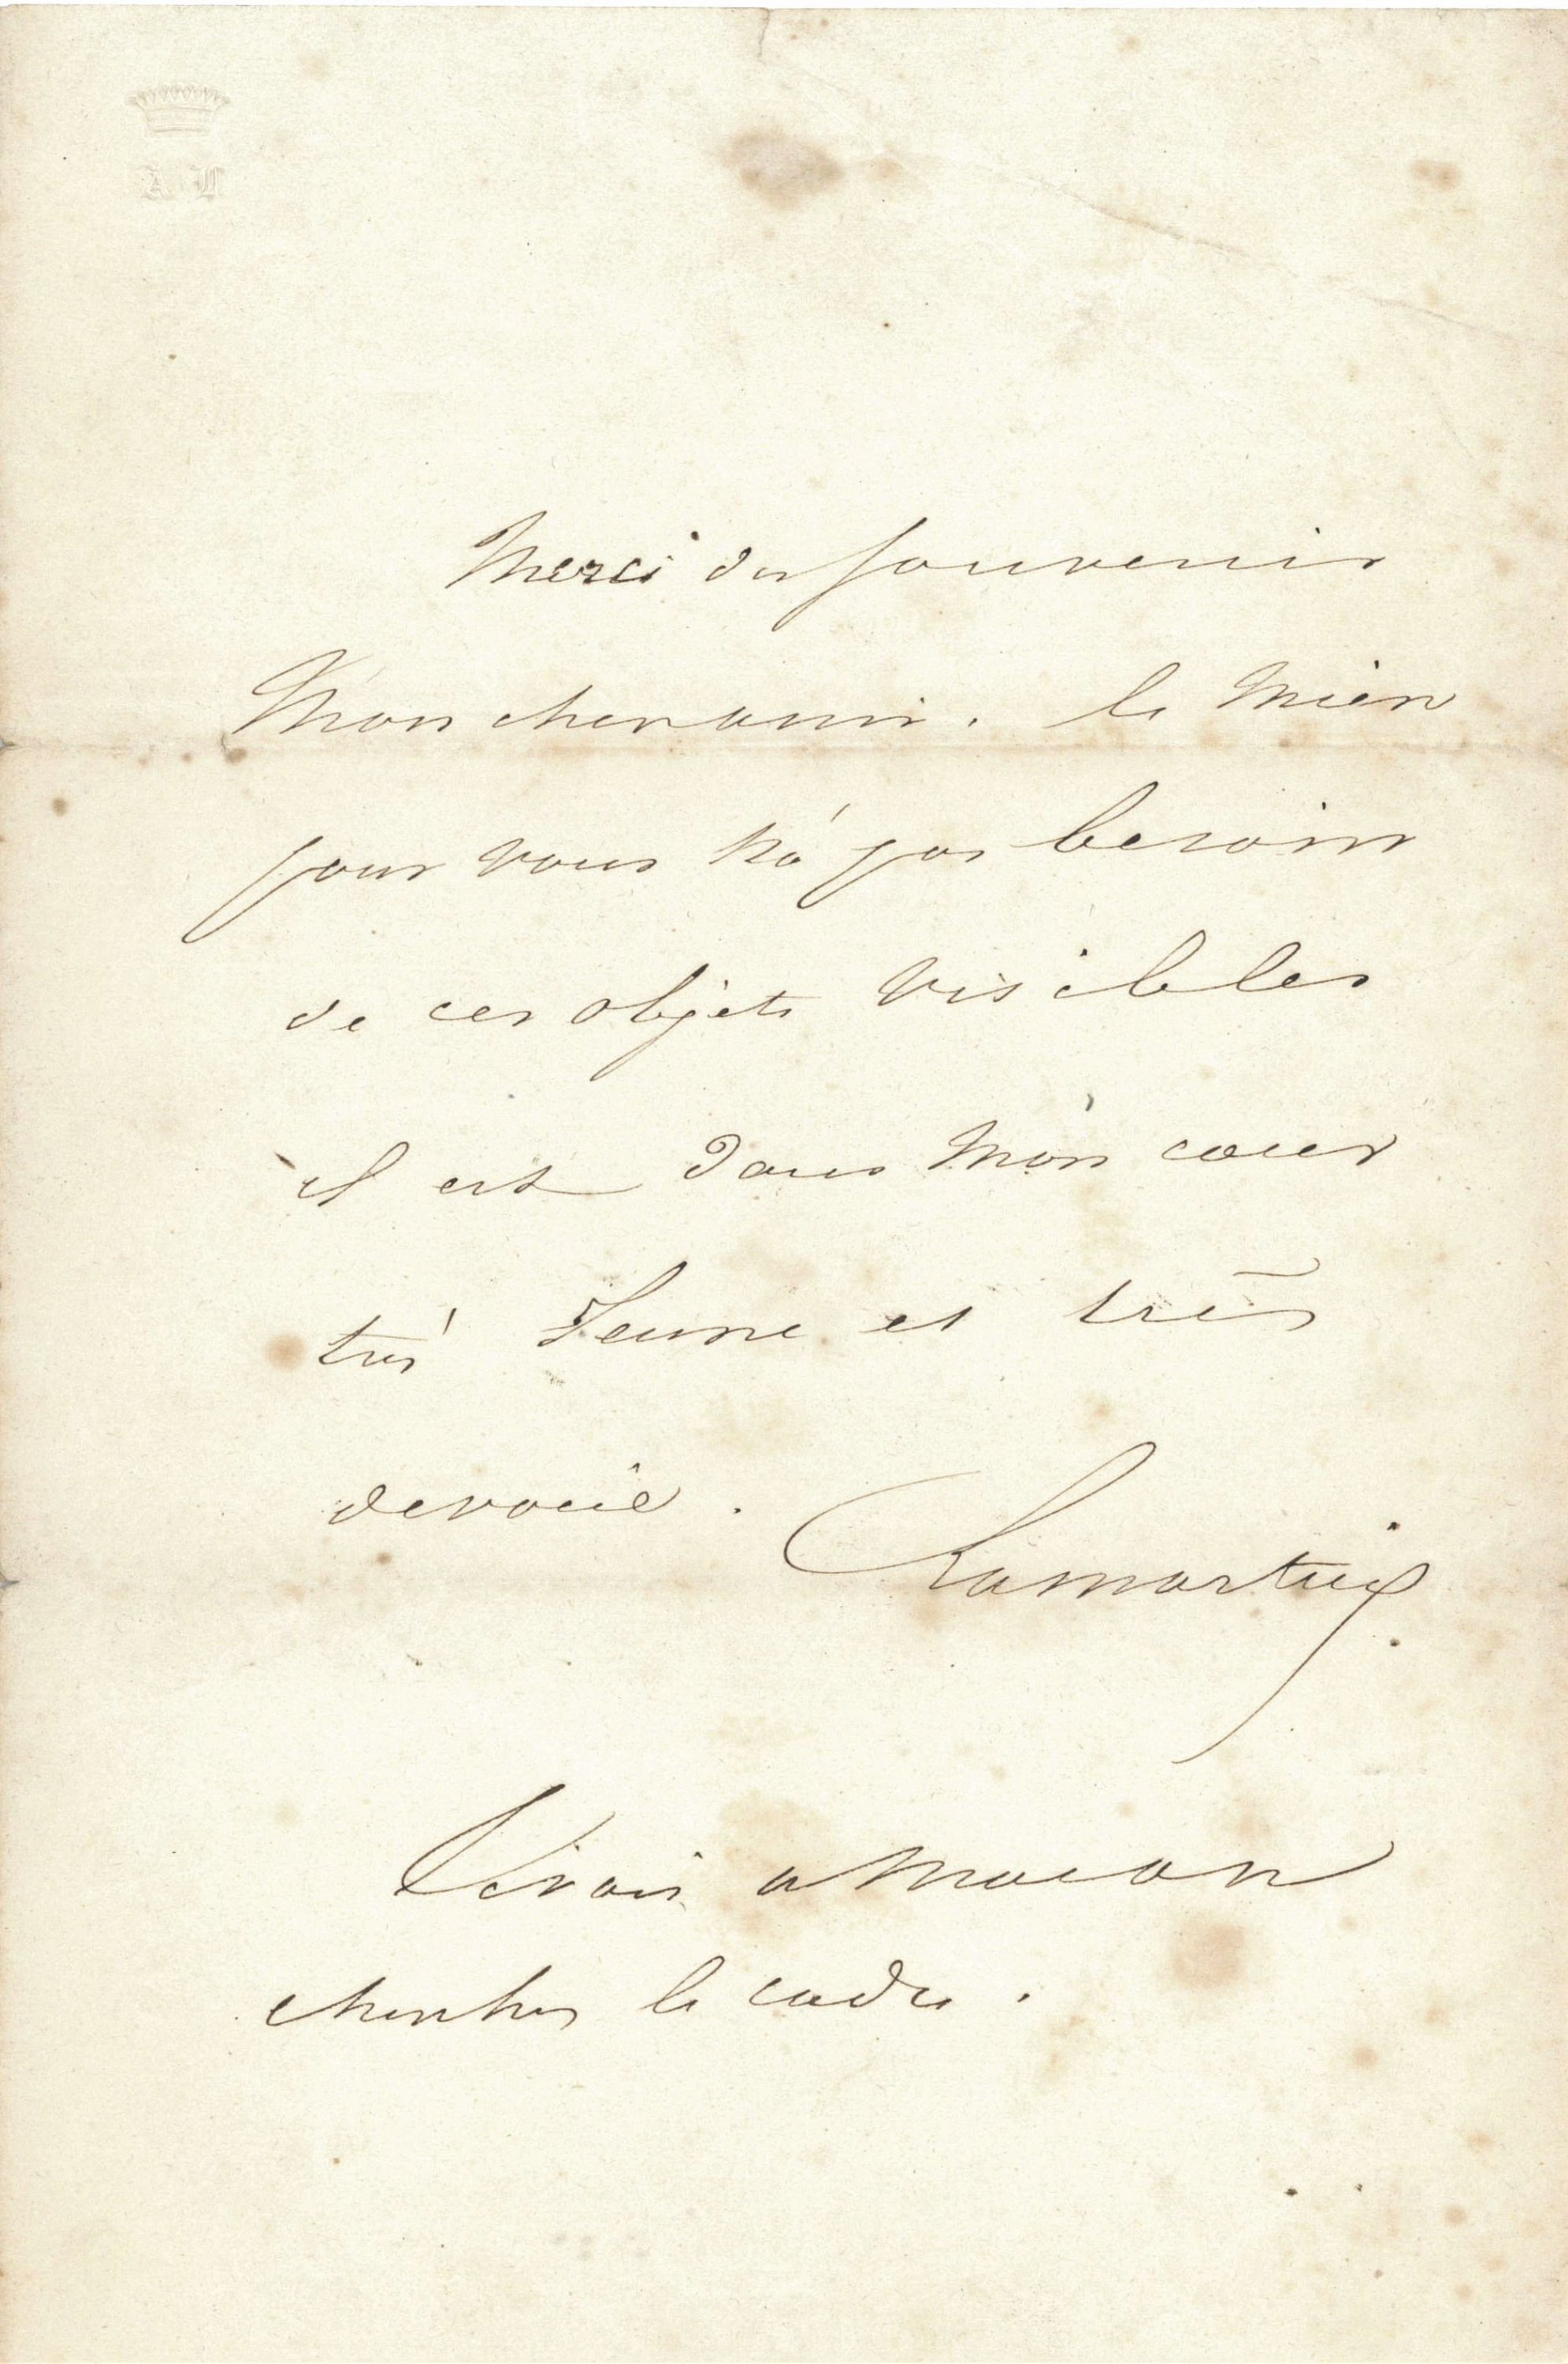 A L
Merci du souvenir
Mon cher ami. le mien
pour vous n'a pas besoin
de ces objets visibles
il est dans mon cœur
très Jeune et très
devoué.
Lamartine
J'envoie a Macon
chercher le cadre.